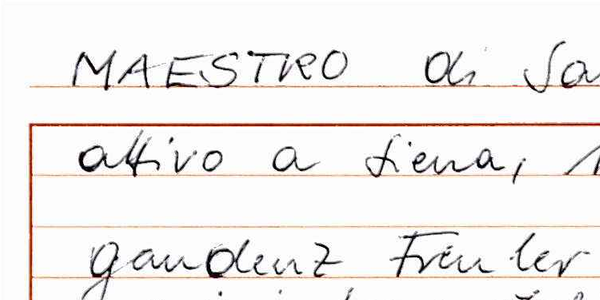 MAESTRO di
attivo a Siena,
Gaudenz Freuler